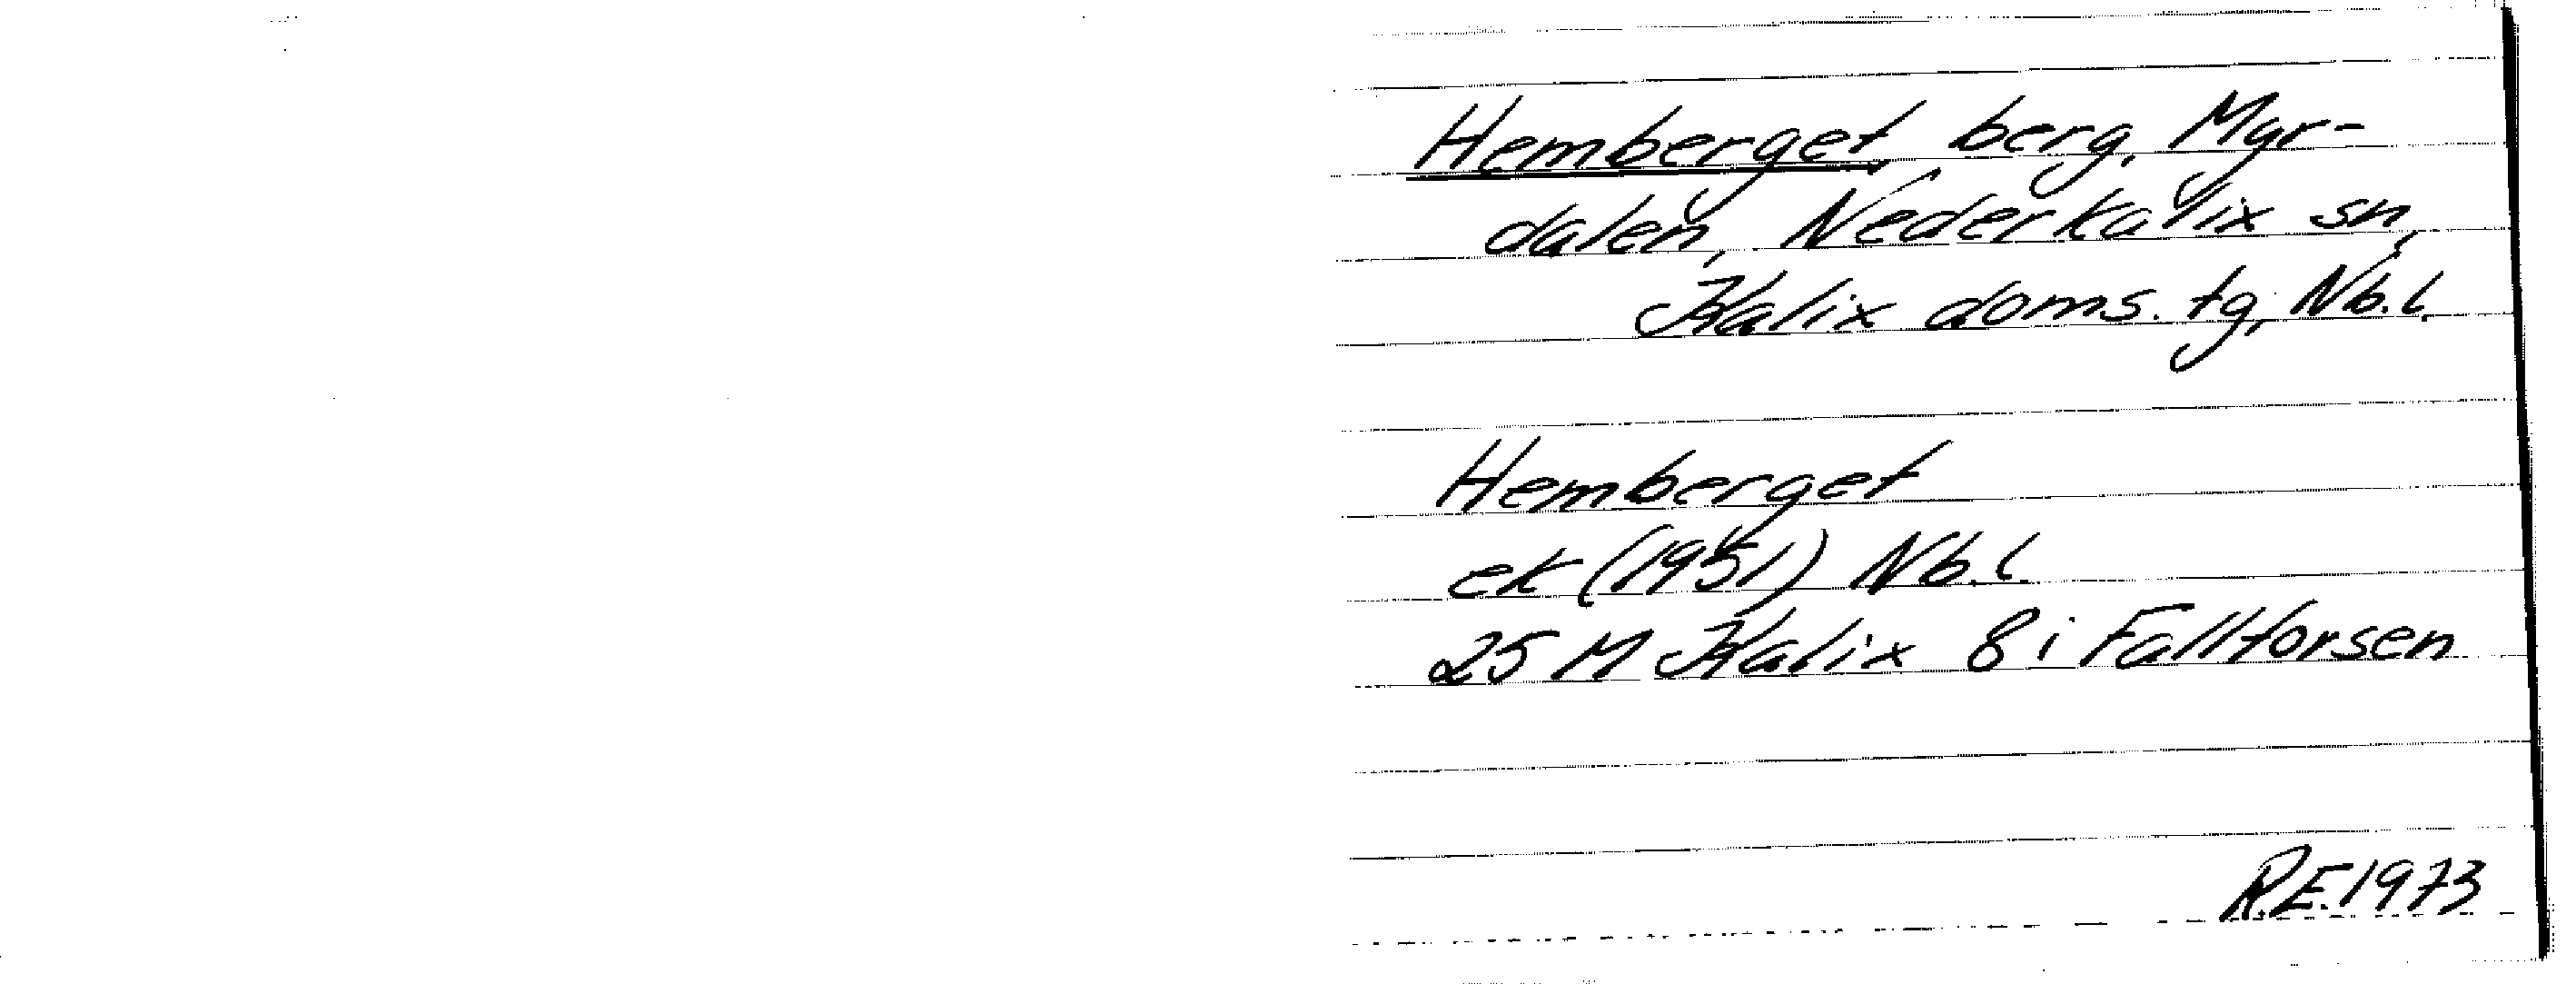 Hemberget, berg, Myr-
dalen, Nederkalix sn,
Kalix doms. tg, Nb.l.
Hemberget
ek (1951) Nb.l.
25 M Kalix 8 i Fallforsen
R.E. 1973